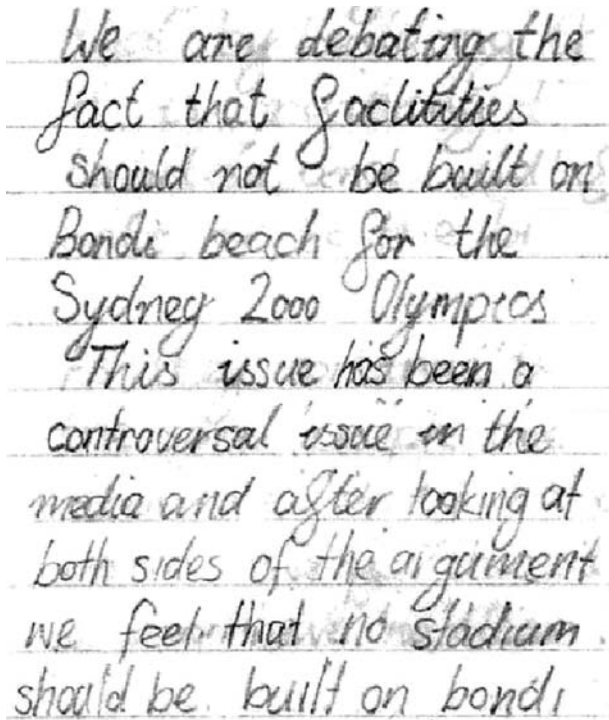 We are debating the
fact that faclitities
should not be built on
Bondi beach for the
Sydney 2000 Olympics
This issue has been a
controversal issue in the
media and after looking at
both sides of the argument
we feel that no stadium
should be built on bondi